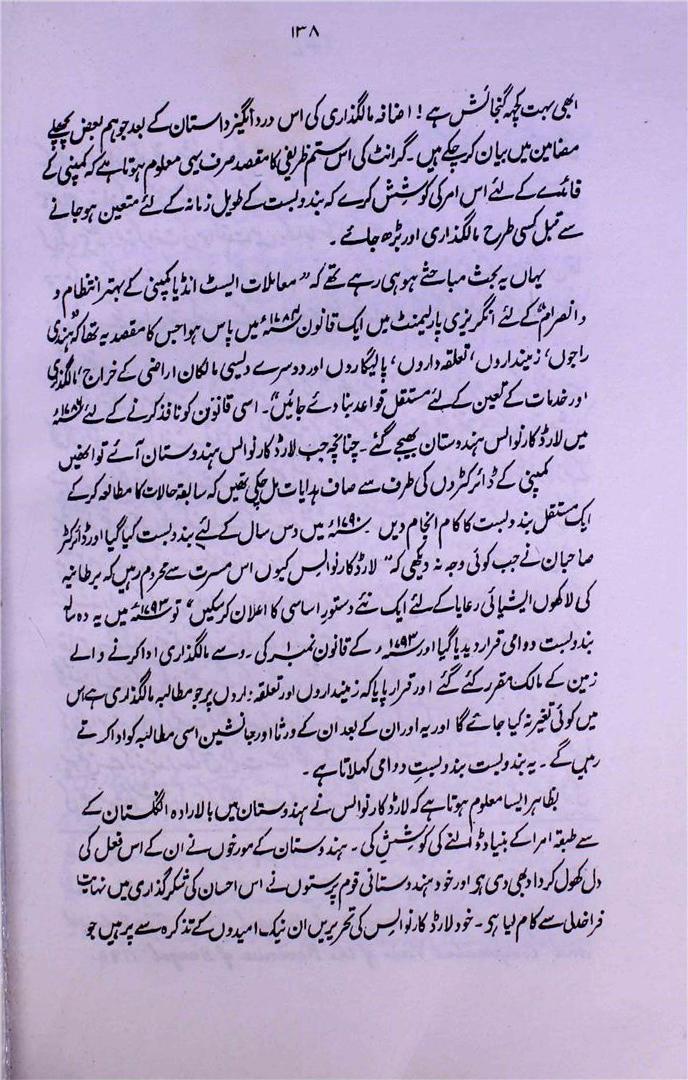 ۱۳۸
ابھی بہت کچھ گنجائش ہے! اضافہ مالگذاری کی اس درد انگیز داستان کے بعد جو ہم بعض پچھلے
مضامین میں بیان کر چکے ہیں۔ گرانٹ کی اس ستم ظریفی کا مقصد صرف یہی معلوم ہوتا ہے کہ کمپنی کے
فائدے کے لئے اس امر کی کوشش کرے کہ بندوبست کے طویل زمانہ کے لئے متعین ہو جانے
سے قبل کسی طرح مالگذاری اور بڑھ جائے۔
یہاں یہ بحث مباحثے ہو ہی رہے تھے کہ "معاملات ایسٹ انڈیا کمپنی کے بہتر انتظام و
و انصرام" کے لئے انگریزی پارلیمنٹ میں ایک قانون ۱۷۸۴ء میں پاس ہوا جس کا مقصد یہ تھا کہ "ہندی
راجوں، زمینداروں، تعلقہ داروں، پالیگاروں اور دوسرے دیسی مالکان اراضی کے خراج، مالگذاری
اور خدمات کے تعین کے لئے مستقل قواعد بنا دئے جائیں"۔ اسی قانون کو نافذ کرنے کے لئے ۱۷۸۶ء
میں لارڈ کارنوالس ہندوستان بھیجے گئے۔ چنانچہ جب لارڈ کارنوالس ہندوستان آئے تو انھیں
کمپنی کے ڈائرکٹروں کی طرف سے صاف ہدایات مل چکی تھیں کہ سابقہ حالات کا مطالعہ کر کے
ایک مستقل بندوبست کا کام انجام دیں ۱۷۹۰ء میں دس سال کے لئے بندوبست کیا گیا اور ڈائرکٹر
صاحبان نے جب کوئی وجہ نہ دیکھی کہ "لارڈ کارنوالس کیوں اس مسرت سے محروم رہیں کہ برطانیہ
کی لاکھوں ایشیائی رعایا کے لئے ایک نئے دستور اساسی کا اعلان کر سکیں" تو ۱۷۹۳ء میں یہ دہ سالہ
بندوبست دوامی قرار دیدیا گیا اور ۱۷۹۳ء کے قانون نمبر ۱ کی روسے مالگذاری ادا کرنے والے
زمین کے مالک مقرر کئے گئے اور قرار پایا کہ زمینداروں اور تعلقہ داروں پر جو مطالبہ مالگذاری ہے اس
میں کوئی تغیر نہ کیا جائے گا اور یہ اور ان کے بعد ان کے ورثا اور جانشین اسی مطالبہ کو ادا کرتے
رہیں گے۔ یہ بندوبست بندوبستِ دوامی کہلاتا ہے۔
بظاہر ایسا معلوم ہوتا ہے کہ لارڈ کارنوالس نے ہندوستان میں بالارادہ انگلستان کے
سے طبقہ امرا کے بنیاد ڈالنے کی کوشش کی۔ ہندوستان کے مورخوں نے ان کے اس فعل کی
دل کھول کر داد بھی دی ہی اور خود ہندوستانی قوم پرستوں نے اس احسان کی شکر گذاری میں نہایت
فراخدلی سے کام لیا ہی۔ خود لارڈ کارنوالس کی تحریریں ان نیک امیدوں کے تذکرہ سے پر ہیں جو